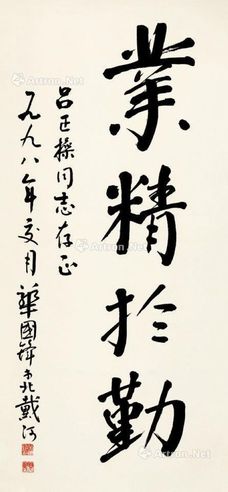 業精於勤
吕正操同志存正
一九九八年交月
華國鋒书於北戴河
Artron.Net
Artron.Net
Artron.Net
Artron.Net